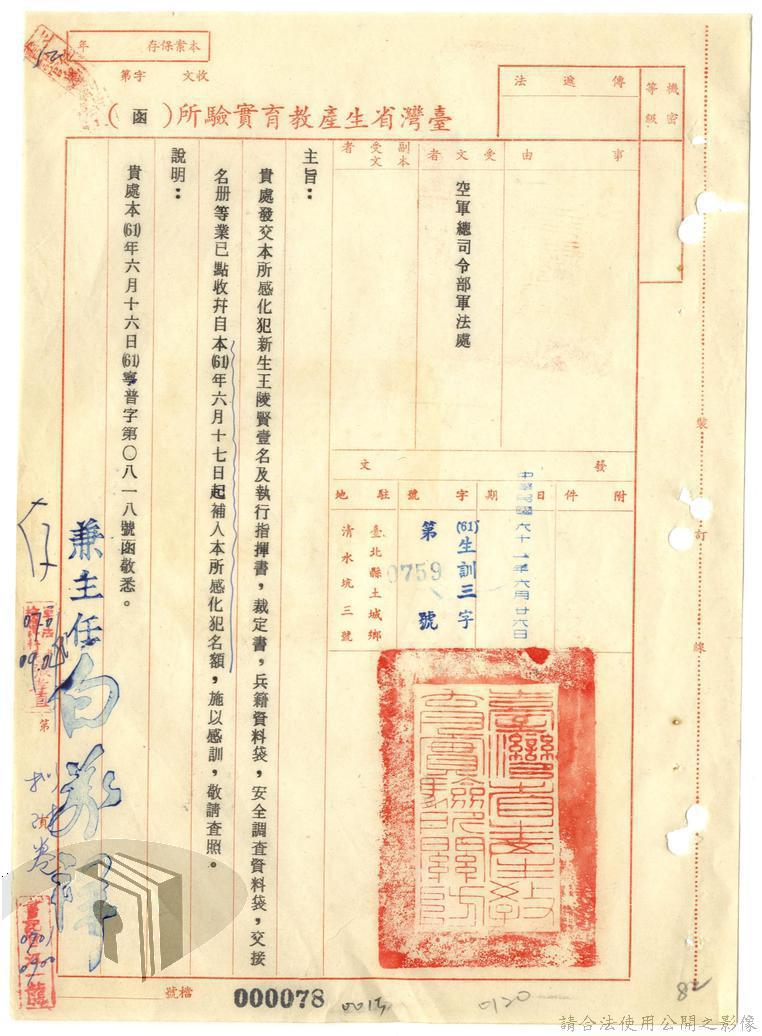 本案保存　年
收文　字第
臺灣省生產教育實驗所（函）
傳遞法
機密等級
事由
受文者
副本受文者
空軍總司令部軍法處
發文
附件
日期
字號
駐地
中華民國六十一年六月廿六日
(61)生訓三字
第0759號
臺北縣土城鄉
清水坑三號
主旨：
貴處發交本所感化犯新生王陵賢壹名及執行指揮書，裁定書，兵籍資料袋，安全調查資料袋，交接
名册等業已點收幷自本(61)年六月十七日起補入本所感化犯名額，施以感訓，敬請查照。
說明：
貴處本(61)年六月十六日(61)寧普字第〇八一八號函敬悉。
兼主任
存
臺灣省生產教育實驗所關防
裝訂線
第
檔號
000078
0120
82
0701
0900
請合法使用公開之影像